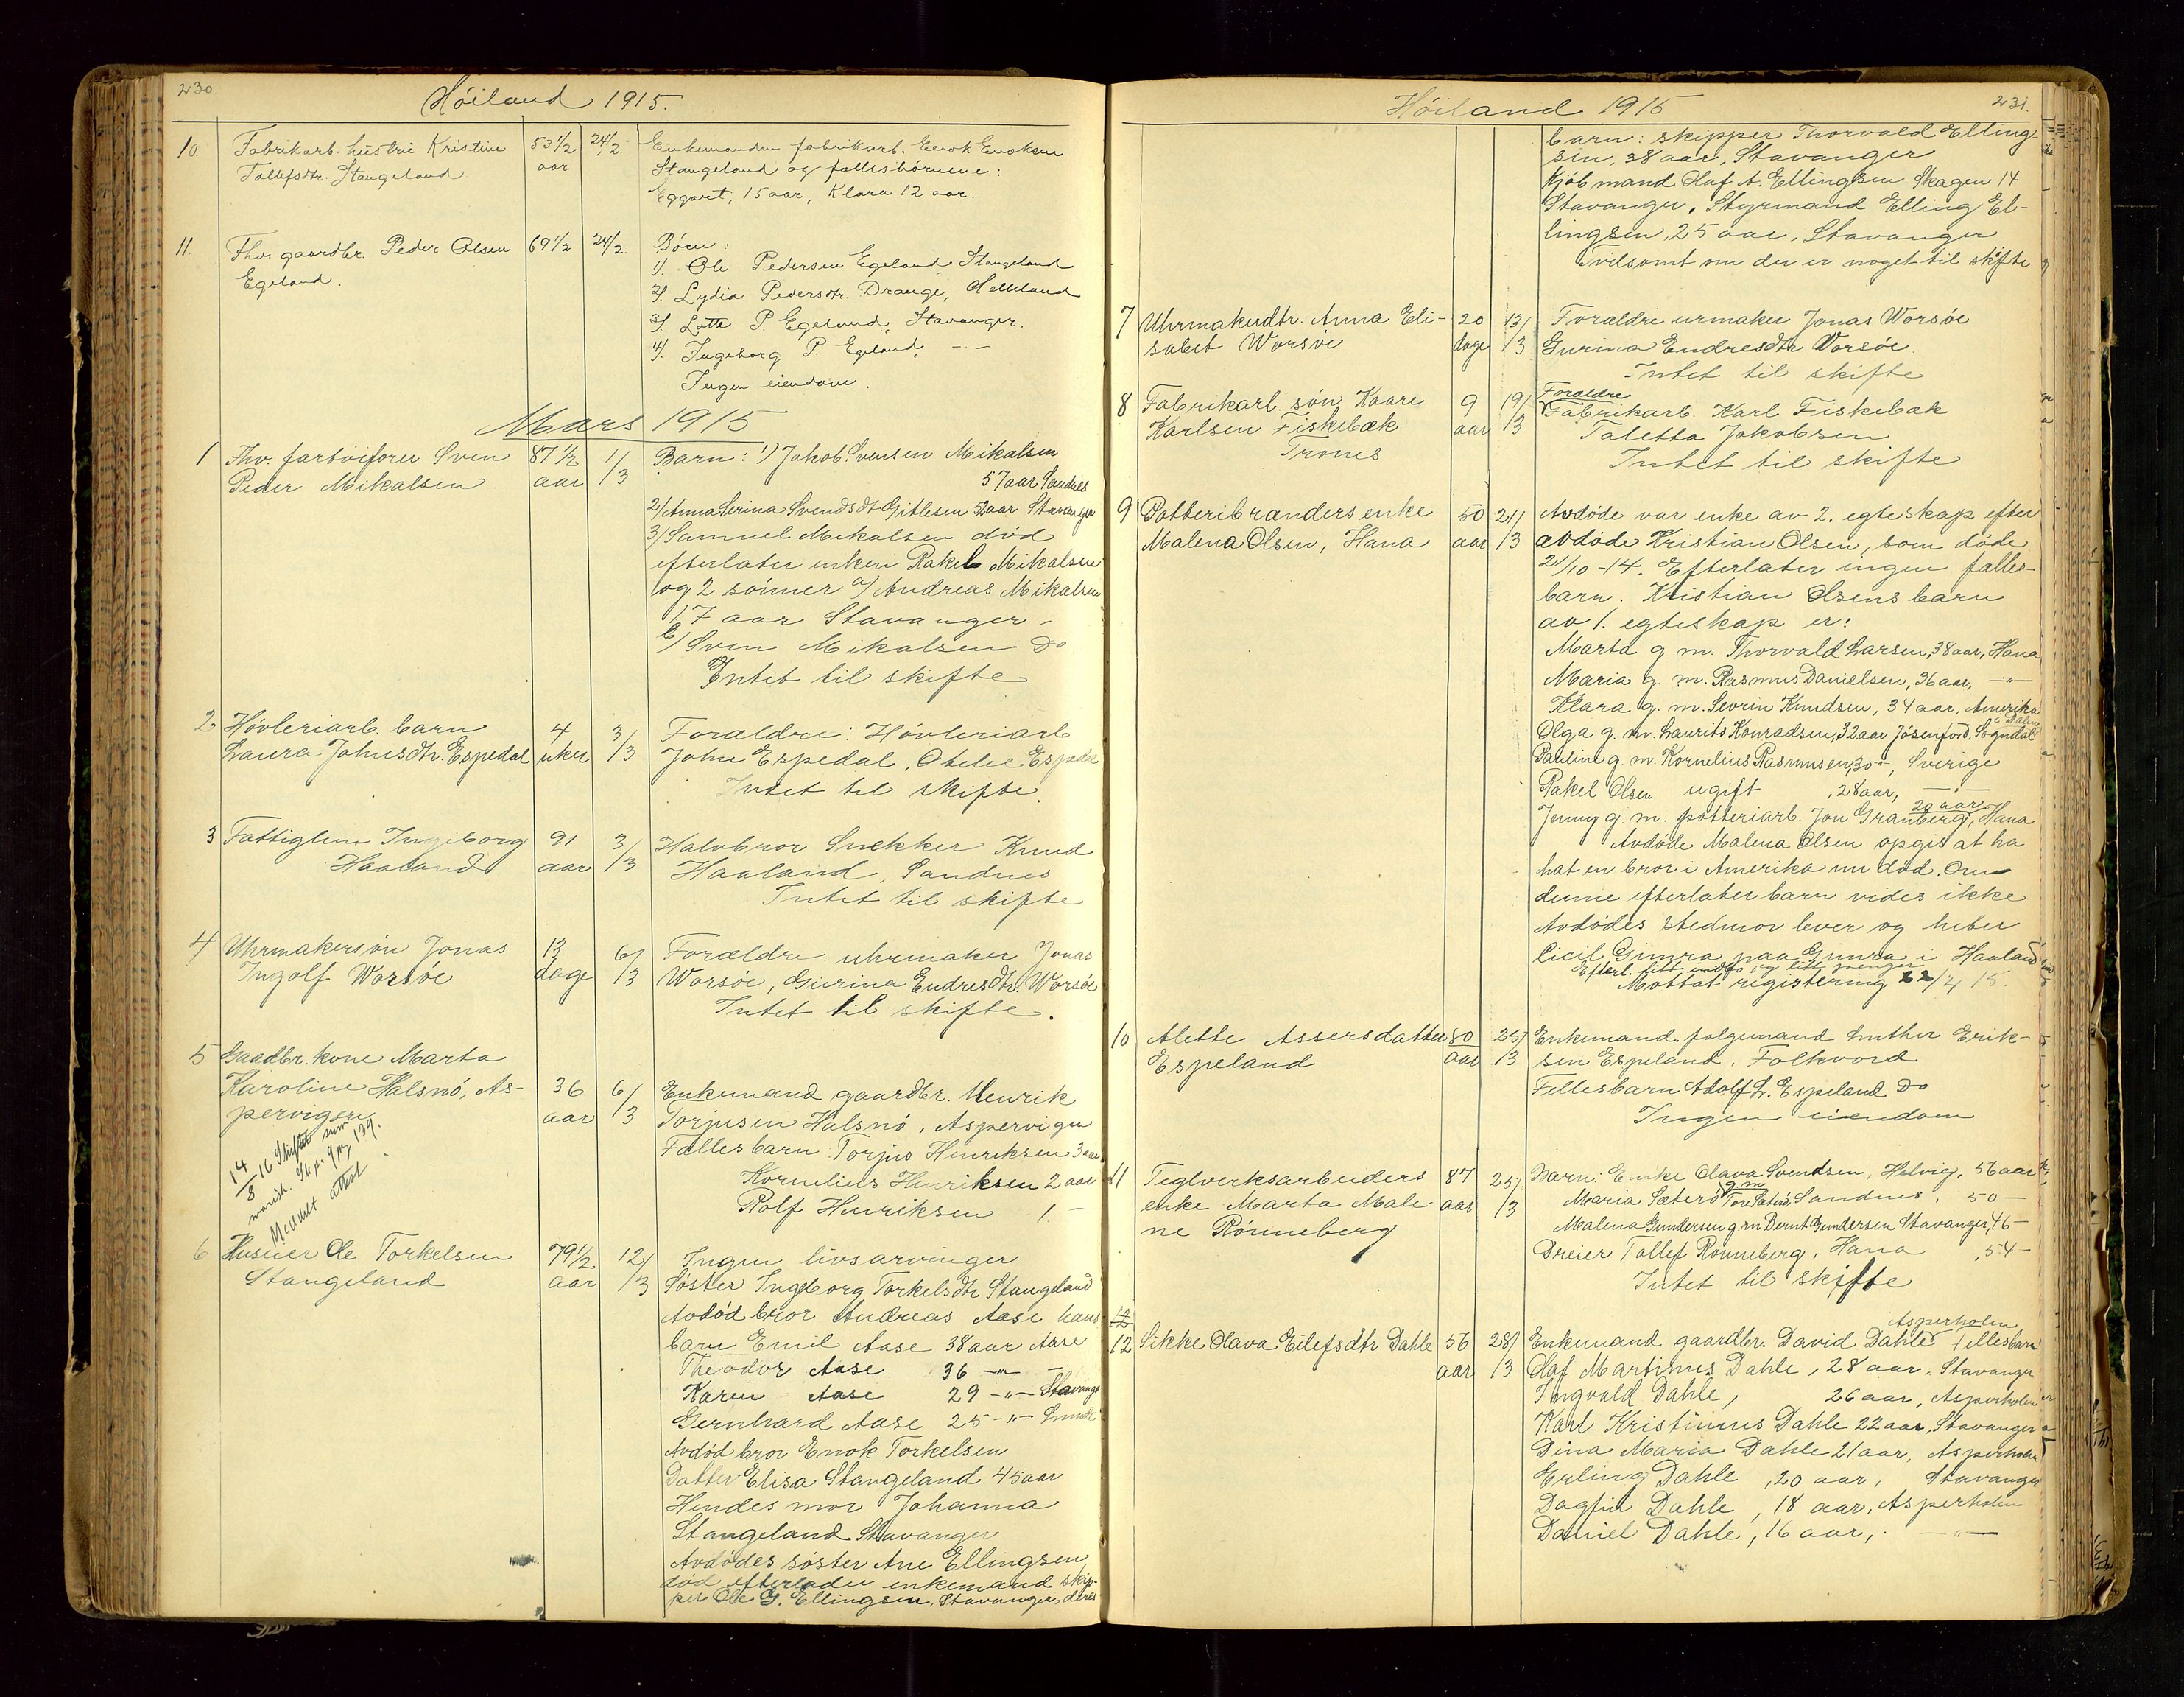 230
Höiland 1915.
10. Fabrikarb. hustru Kristine 53 1/2 24/2. Enkemanden fabrikarb. Enok Enoksen
Tollefsdtr. Stangeland aar Stangeland og fællesbørnene:
Eggart, 15 aar, Klara 12 aar.
11. Fhv. gaardbr. Peder Olsen 69 1/2 24/2. Børn:
Egeland. 1). Ole Pedersen Egeland, Stangeland
2). Lydia Pedersdtr. Drange, Helleland
3). Lotte P Egeland, Stavanger.
4). Ingeborg P Egeland, -"-
Ingen eiendom.
Mars 1915
1 Fhv. fartöiförer Sven 87 1/2 1/3 Barn: 1) Jakob Svensen Mikalsen
Peder Mikalsen aar 57 aar Sandnes
2) Anna Serina Svendsdtr Gitlesen aar Stavanger
3) Samuel Mikalsen död
efterlater enken Rakel Mikalsen
og 2 sönner a) Andreas Mikalsen
17 aar Stavanger -
b) Sven Mikalsen Do
Intet til skifte
2 Hövleriarb. barn 4 3/3 Forældre: Hövleriarb.
Laura Johnsdtr. Espedal uker John Espedal, Otelie Espedal
Intet til skifte.
3 Fattiglem Ingeborg 91 3/3 Halvbror Snekker Knud
Haaland aar Haaland, Sandnes
Intet til skifte
4 Uhrmakersön Jonas 13 6/3 Forældre uhrmaker Jonas
Ingolf Worsöe dage Worsöe, Gurina Endresdtr. Worsöe
Intet til skifte.
5 Gaardbr. kone Marta
Karoline Halsnö, As- 36 6/3 Enkemand gaardbr. Henrik
pervigen aar Torjusen Halsnö, Aspervigen
14/8 16 Skiftet
attest
Fællesbarn Torjus Henriksen 3 aar
Kornelius Henriksen 2 aar
Rolf Henriksen 1 -
6 Huseier Ole Torkelsen 79 1/2 12/3 Ingen livsarvinger
Stangeland aar Söster Ingeborg Torkelsdtr Stangeland
Avdöd bror Andreas Aase hans
barn Emil Aase 38 aar Aase
Theodor Aase 36 -"- -
Karen Aase 29 -"- Stavanger
Gernhard Aase 25 -"-
Avdöd bror Enok Torkelsen
Datter Elisa Stangeland 45 aar
Hendes mor Johanna
Stangeland Stavanger
Avdödes söster Ane Ellingsen,
död efterlader enkemand skip-
per Ole G. Ellingsen, Stavanger, deres
Höiland 1915
231.
barn: skipper Thorvald Elling
sen, 28 aar, Stavanger
Kjöbmand Olaf A. Ellingsen Skagen 14
Stavanger. Styrmand Elling El-
lingsen, 25 aar, Stavanger
Tvilsomt om der er noget til skifte
7 Uhrmakerdtr. Anna Eli- 20 13/3 Foraldre urmaker Jonas Worsöe
sabet Worsöe dage Gurina Endresdtr Worsöe.
Intet til skifte
8 Fabrikarb. sön Kaare 9 19/3 Foraldre
Karlsen Fiskebæk aar Fabrikarb. Karl Fiskebæk
Trones Taletta Jakobsen
Intet til skifte
9 Potteribrænders enke 50 21/3 Avdöde var enke av 2. egteskap efter
Malena Olsen, Hana aar avdöde Kristian Olsen, som döde
21/10-14. Efterlater ingen fælles-
barn. Kristian Olsens barn
av 1. egteskap er:
Marta g. m. Thorvald Larsen, 38 aar, Hana
Maria g. m. Rasmus Danielsen, 36 aar, -"-
Klara g. m. Sevrin Knudsen, 34 aar, Amerika
Olga g. m. Laurits Konradsen, 32 aar Jösenfjord. Sogndal i Dalene
Pauline g. m. Kornelius Rasmusen, 30 -"-, Sverige
Rakel Olsen ugift, 28 aar, -"-
Jenny g. m. potteriarb. Jon Granberg, 20 aar, Hana
Avdöde Malena Olsen opgis at ha
hat en bror i Amerika nu död. Om
denne efterlater barn vides ikke
Avdödes stedmor lever og heter
Cicil Gimra paa Gimra i Haaland
Efterl. litt indbo og litt penger
Mottat registering 22/4 15.
10 Alette Assersdatter 80 25/3 Enkemand folgemand Luther Erik-
Espeland aar sen Espeland. Folkvord
Fellesbarn Adolf L. Espeland Do
Ingen eiendom
11 Teglverksarbeiders 87 25/3 Barn: Enke Olava Svendsen, Helvig, 56 aar
enke Marta Male- aar Maria Sæterö g.m. Tore Sæterö, Sandnes, 50 -
ne Rönneberg Malena Gundersen g.m Bernt Gundersen Stavanger, 46 -
Dreier Tollef Rönneberg, Hana, 54 -
Intet til skifte
12
12 Sikke Olava Eilefsdtr Dahle 56 28/3 Enkemand gaardbr. David Dahle Asperholm fellesbarn
aar Olaf Martinus Dahle, 28 aar, Stavanger
Ingvald Dahle, 26 aar, Asperholm
Karl Kristinus Dahle 22 aar, Stavanger
Dina Maria Dahle 21 aar, Asperholm
Erling Dahle, 20 aar, Stavanger
Dagfin Dahle, 18 aar, Asperholm
Daniel Dahle, 16 aar, -"-